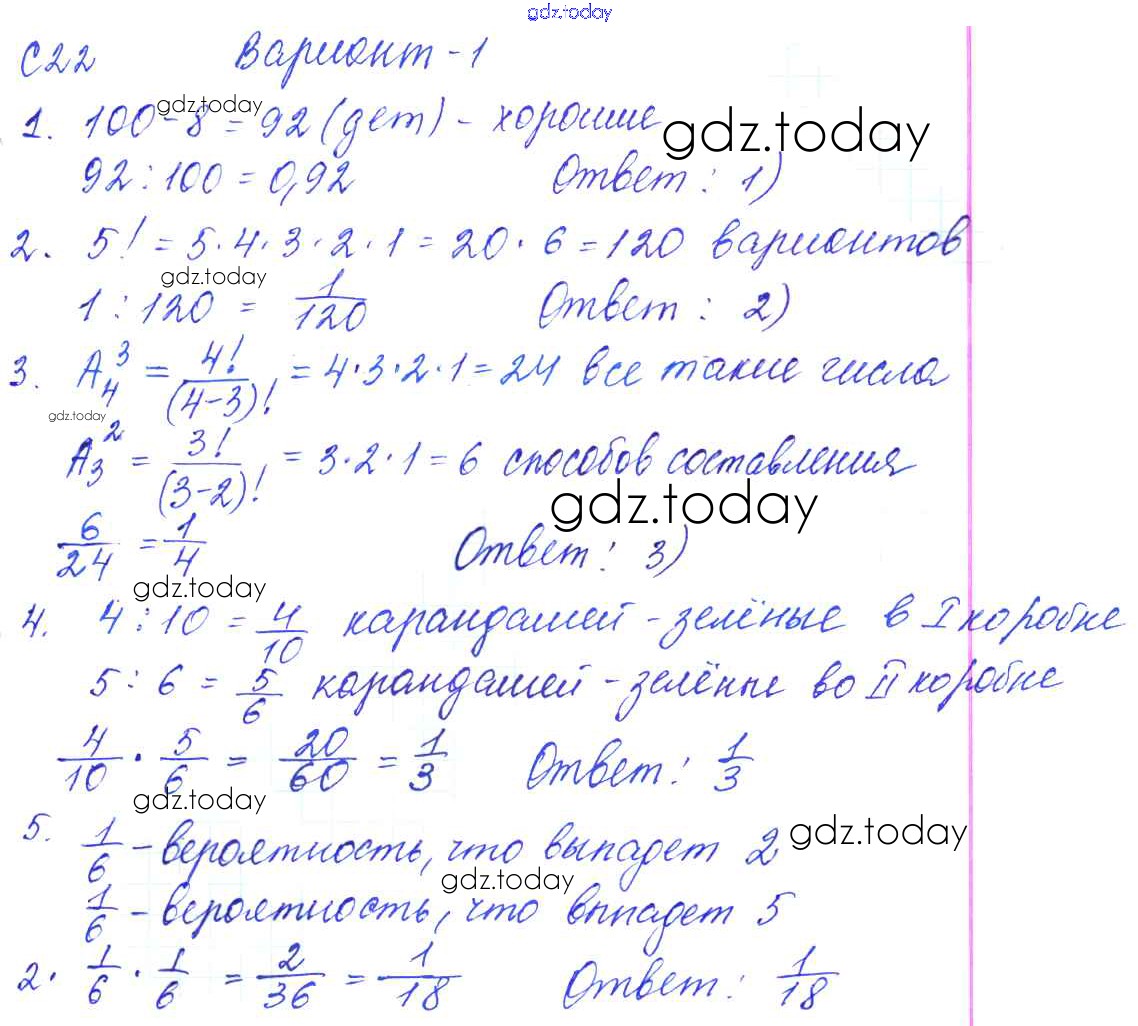 gdz.today
С22 Вариант - 1
gdz.today
1. 100 - 8 = 92 (дет) - хорошие
gdz.today
92 : 100 = 0,92 Ответ : 1)
2. 5! = 5 · 4 · 3 · 2 · 1 = 20 · 6 = 120 вариантов
gdz.today
1 : 120 = 1/120 Ответ : 2)
3. A₄³ = 4!/(4-3)! = 4 · 3 · 2 · 1 = 24 все такие числа
gdz.today
A₃² = 3!/(3-2)! = 3 · 2 · 1 = 6 способов составления
gdz.today
6/24 = 1/4 Ответ : 3)
gdz.today
4. 4 : 10 = 4/10 карандашей - зелёные в I коробке
5 : 6 = 5/6 карандашей - зелёные во II коробке
4/10 · 5/6 = 20/60 = 1/3 Ответ : 1/3
gdz.today
5. 1/6 - вероятность, что выпадет 2
gdz.today
gdz.today
1/6 - вероятность, что выпадет 5
2 · 1/6 · 1/6 = 2/36 = 1/18 Ответ : 1/18